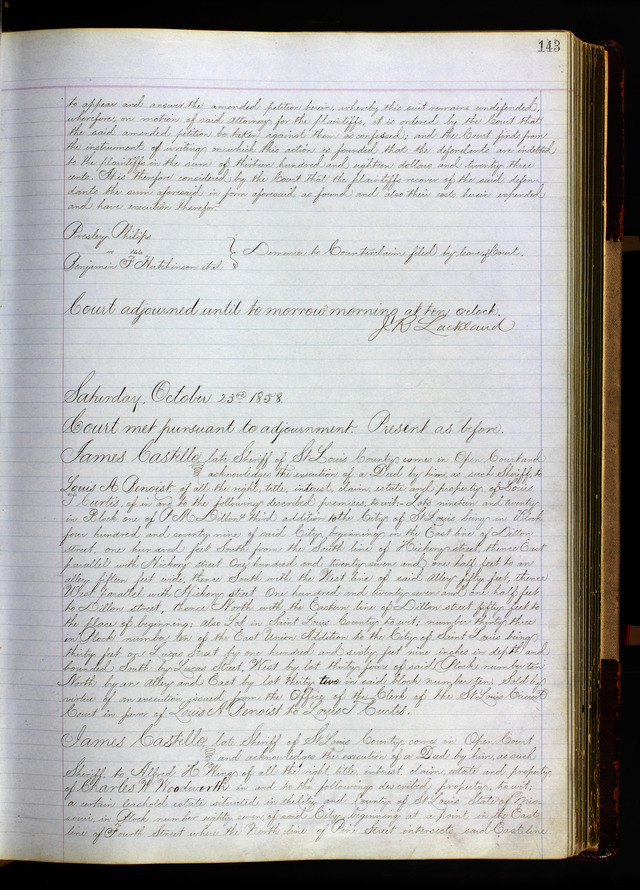 143
to appear and answer the amended petition herein, whereby this suit remains undefended,
wherefore, on motion of said attorney for the plaintiffs, it is ordered by the Court that
the said amended petition be taken against them as confessed; and the Court finds from
the instruments of writing on which this action is founded that the defendants are indebted
to the plaintiffs in the sum of thirteen hundred and eighteen dollars and twenty three
cents. It is therefore considered by the Court that the plaintiffs recover of the said defen-
dants the sum aforesaid in form aforesaid as found and also their costs herein expended
and have execution therefor.
Presley Philips
Demurrer to Counterclaim filed by leave of Court.
Benjamin F Hutchinson et al
Court adjourned until tomorrow morning at ten oclock.
J. R Lackland
Saturday, October 23rd 1858
Court met pursuant to adjournment. Present as before.
James Castello, late Sheriff of St Louis County, comes in Open Court and
acknowledges the execution of a Deed by him, as such Sheriff, to
Louis A Benoist, of all the right, title, interest, claim, estate and property of Louis
T Curtis, of in and to the following described premises, to wit: Lots nineteen and twenty
in Block one of P. M. Dillon's third addition to the City of St Louis being in Block
four hundred and seventy nine of said City, beginning in the East line of Dillon
street, one hundred feet South from the South line of Hickory street, thence East
parallel with Hickory street One hundred and twenty seven and one half feet to an
alley fifteen feet wide, thence South with the West line of said alley fifty feet, thence
West parallel with Hickory street One hundred and twenty seven and one half feet
to Dillon street, thence North with the Eastern line of Dillon street fifty feet to
the place of beginning, also Lot in Saint Louis County to wit; number thirty three
in Block number ten of the East Union Addition to the City of Saint Louis being
thirty feet on Lucas Street by one hundred and sixty feet nine inches in depth and
bounded South by Lucas Street, West by lot thirty four of said Block number ten
North by an Alley and East by lot thirty two in said block number ten, Sold by
virtue of an execution issued from the Office of the Clerk of the St Louis Circuit
Court in favor of Louis A Benoist to Louis T Curtis.
James Castello, late Sheriff of St Louis County, comes in Open Court
and acknowledges the execution of a Deed by him, as such
Sheriff to Alfred K Wing, of all the right, title, interest, claim, estate and property
of Charles W Woodworth in and to the following described property, to wit:
a certain leasehold estate situated in the City and County of St Louis, State of Mis-
souri, in Block number eighty seven of said City, beginning at a point in the East
line of Fourth Street where the North line of Pine Street intersects said East line